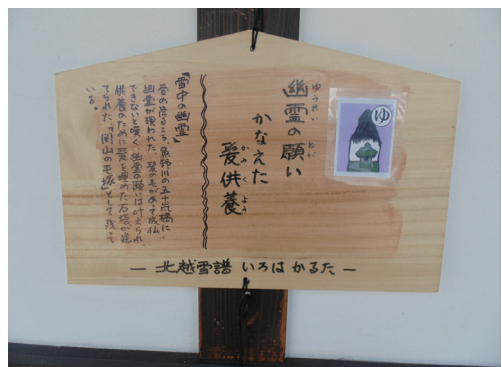 ゆ
ゆうれい ねが
幽霊の願い
かなえた
かみ く よう
髪供養
『雪中の幽霊』
雪の降るころ、魚野川の橋に、
幽霊が現われた。髪の毛があって成仏
できないと嘆く、幽霊の願いは叶えられ、
供養のために髪を埋めた石塔が建
てられた。「関山の毛塚」として残って
いる。
― 北越雪譜 いろはかるた ―